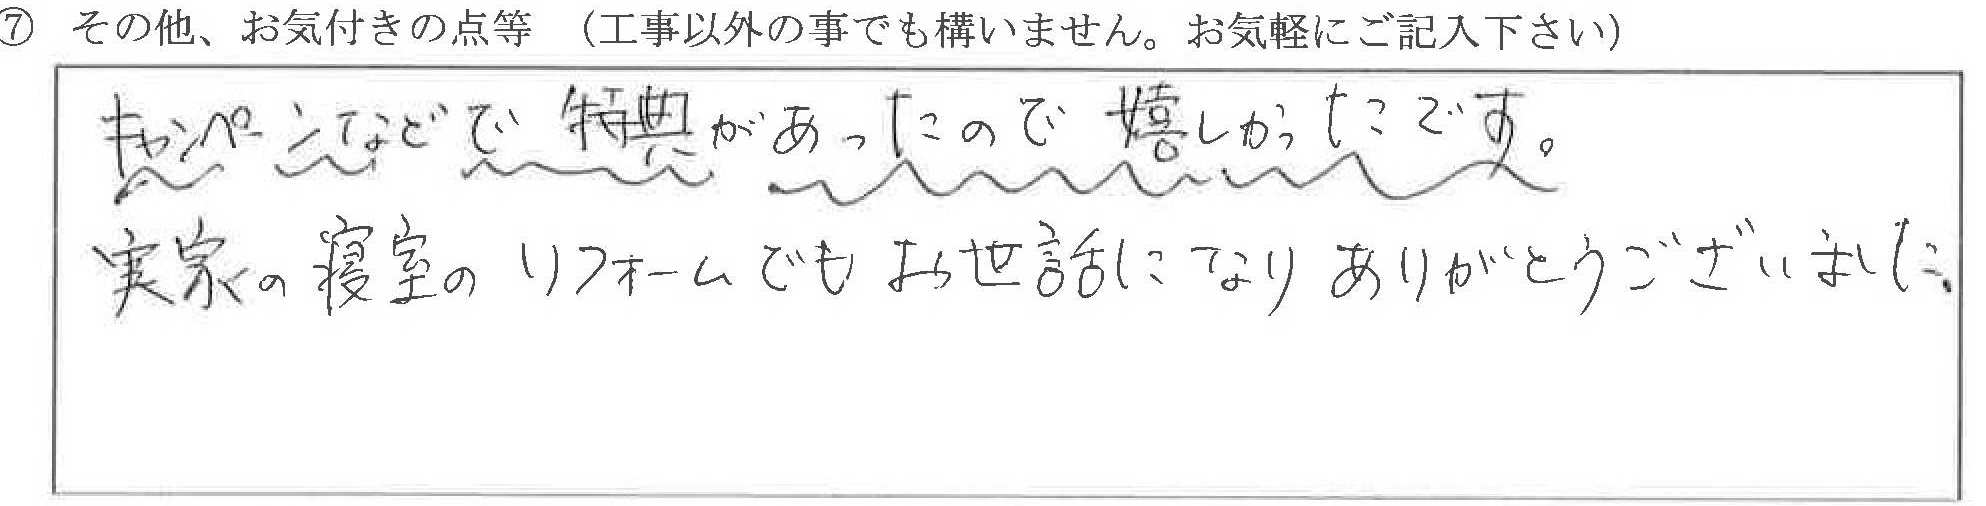 ⑦ その他、お気付きの点等 （工事以外の事でも構いません。お気軽にご記入下さい）
キャンペーンなどで特典があったので嬉しかったです。
実家の寝室のリフォームでもお世話になりありがとうございました。